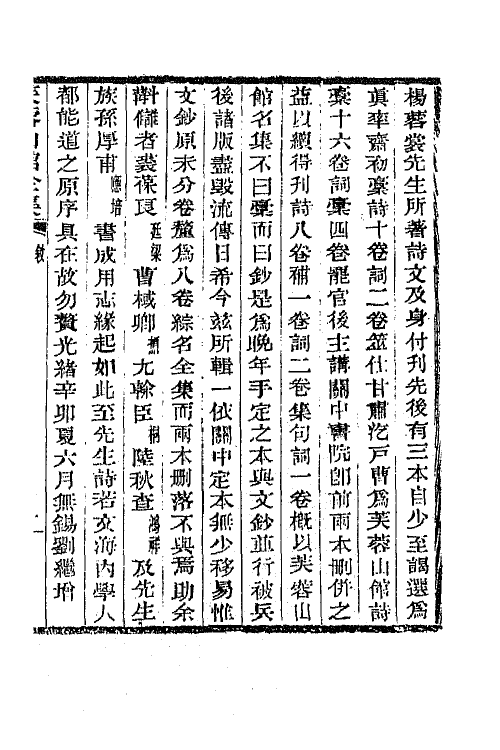 楊蓉裳先生所著詩文及身付刊先後有三本自少至謁選爲
眞率齋初稾詩十卷詞二卷筮仕甘肅迄戶曹爲芙蓉山館詩
稾十六卷詞稾四卷罷官後主講關中書院卽前兩本刪併之
益以續得刊詩八卷補一卷詞二卷集句詞一卷槪以芙蓉山
館名集不曰稾而曰鈔是爲晩年手定之本與文鈔並行被兵
後諸版盡毀流傳日希今玆所輯一依關中定本無少移易惟
文鈔原未分卷釐爲八卷綜名全集而兩本刪落不與焉助余
讎者裘葆良廷梁曹棫卿尤翰臣桐陸秋查鴻祥及先生
族孫厚甫應培書成用志緣起如此至先生詩若文海內學人
都能道之原序具在故勿贅光緒辛卯夏六月無錫劉繼增
芙蓉山館全集